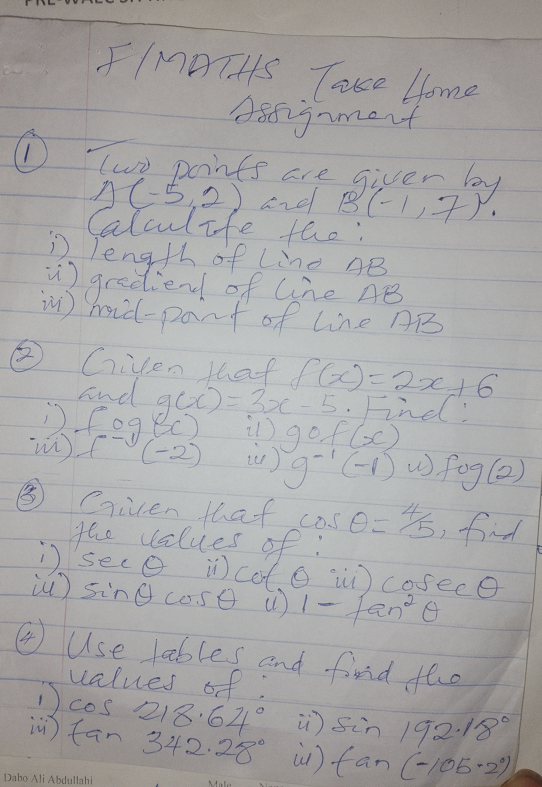 F/MATHS Take Home
Assignment
① Two points are given by
A(-5,2) and B(-1,7).
Calculate the:
i) length of line AB
ii) gradiend of line AB
iii) mid-point of line AB
② Given that f(x)=2x+6
and g(x)=3x-5. Find:
i) fog(x) ii) gof(x)
iii) f⁻¹(-2) iv) g⁻¹(-1) v) fog(2)
③ Given that cos θ=4/5, find
the values of:
i) sec θ ii) cot θ iii) cosec θ
iv) sin θ cos θ v) 1 - tan² θ
④ Use tables and find the
values of:
i) cos 218.64° ii) sin 192.18°
iii) tan 342.28° iv) tan (-105.2°)
Dabo Ali Abdullahi Male